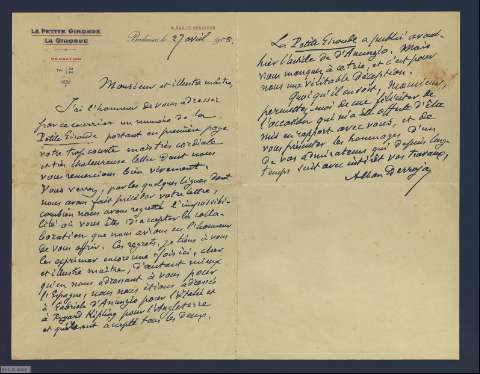 LA PETITE GIRONDE
LA GIRONDE
RÉDACTION
8, RUE DE CHEVERUS
Bordeaux, le 27 avril 19
Monsieur et illustre maître,
J'ai l'honneur de vous adresser
par ce courrier un numéro de la
Petite Gironde portant en première page
votre trop courte mais très cordiale
et très chaleureuse lettre dont nous
vous remercions bien vivement.
Vous verrez, par les quelques lignes dont
nous avons fait précéder votre lettre,
combien nous avons regretté l'impossibi-
lité où vous êtes d'accepter la colla-
boration que nous avions eu l'honneur
de vous offrir. Ces regrets, je tiens à vous
les exprimer encore une fois ici, cher
et illustre maître, d'autant mieux
qu'en nous adressant à vous pour
l'Espagne, nous nous étions adressés
à Gabriele d'Anunzio pour l'Italie et
à Rudyard Kipling pour l'Angleterre
et qu'ils ont accepté tous les deux.
La Petite Gironde a publié avant-
hier l'article de d'Anunzio. Mais
vous manquez à ce trio, et c'est pour
nous une véritable déception.
Quoi qu'il en soit, Monsieur,
permettez-moi de me féliciter de
l'occasion qui m'a été offerte d'être
mis en rapport avec vous, et de
vous présenter les hommages d'un
de vos admirateurs qui depuis long-
temps suit avec intérêt vos travaux.
Alban Derroja